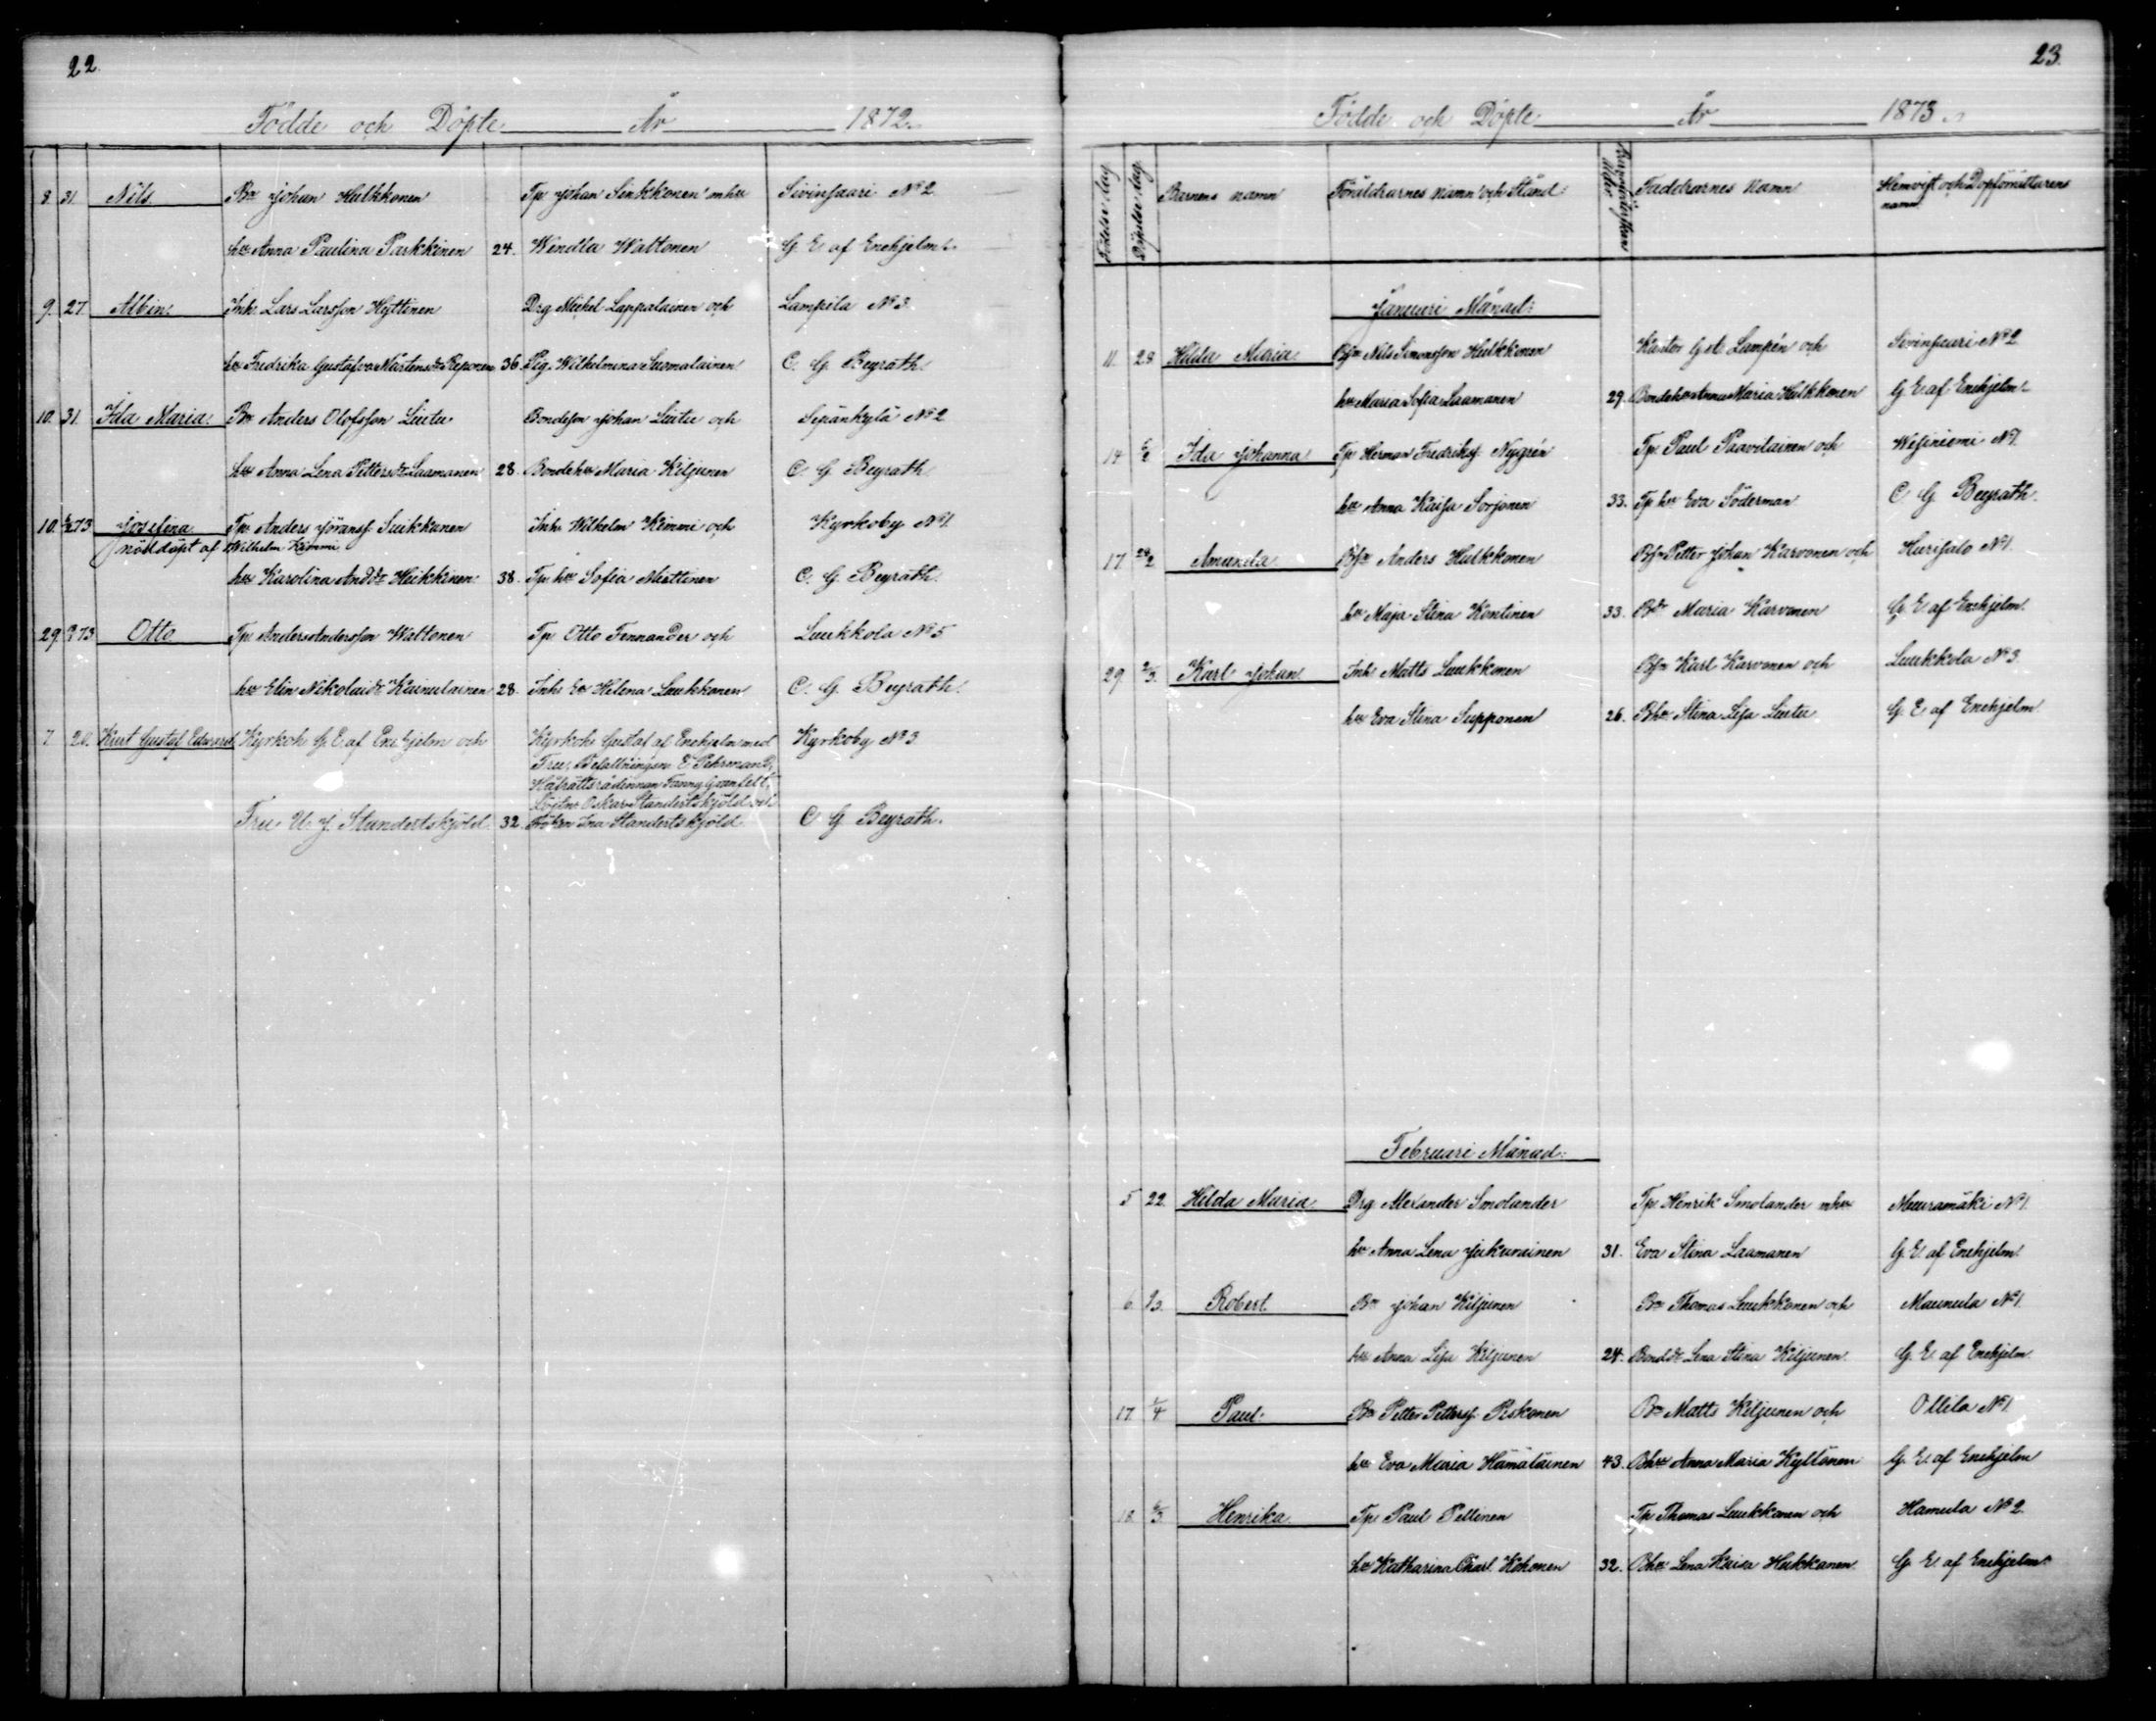 22.
Födde och Döpte År 1872.
8. 31. Nils. Bn Johan Hulkkonen Tp Johan Sinkkonen mhu Sivinsaari No 2
hu Anna Paulina Parkkinen 24. Wendla Wattonen G. E. af Enehjelm.
9. 27. Albin. Inh. Lars Larsson Hyttinen Drg Michel Lappalainen och Lampila No 3.
hu Fredrika Gustafva Mårtensdr Reponen 36. Pig. Wilhelmina Suomalainen C. G. Beyrath.
10. 31. Ida Maria. Bn Anders Olofsson Liutu Bondeson Johan Liutu och Sepänkylä No 2
hu Anna Lena Pettersdr Laamanen 28. Bondehu Maria Kiljunen C. G. Beyrath.
10. 73 Josefina. Tp. Anders Jöransf. Suikkanen Inh. Wilhelm Kimmi och Kyrkoby No 1.
nöddöpt af Wilhelm Kimmi.
hu Karolina Anddr Heikkinen 38. Tp. hu Sofia Miettinen C. G. Beyrath.
29. 73 Otto Tp. Anders Andersson Wattonen Tp Otto Fennander och Luukkola No 5
hu Elin Nikolaidr Kainulainen 28. Inh. Helena Luukkonen C. G. Beyrath.
7. 20. Kurt Gustaf Edvard Kyrkoh G. E. af Enehjelm och Kyrkoh. Gustaf af Enehjelm med Kyrkoby No 3
Fru, Befallningsm. E. Pehrman,
Hofrättsrådinnan Fanny Granfelt,
Löjtn. Oskar Standertskjöld och
Fru U. J. Standertskjöld. 32. Fröken Ina Standertskjöld C. G. Beyrath.
23.
Födde och Döpte År 1873
Födelse dag Döpelse dag Barnens namn Föräldrarnes Namn och Stånd: Barnaföderskans ålder Faddrarnes Namn Hemvist och Dopförrättarens
namn
Januari Månad:
11. 28 Hilda Maria Bsn Nils Simonsson Hulkkonen Kantor G. A. Lampén och Sivinsaari No 2
hu Maria Sofia Laamanen 29. Bondehu Anna Maria Hulkkonen G. E. af Enehjelm.
14 Ida Johanna Tp. Herman Fredriksf. Nygrén Tp. Paul Paavilainen och Wesiniemi No 1
hu Anna Kaisa Sorjonen 33. Tp. hu Eva Söderman C. G. Beyrath.
17. Amanda Bsn Anders Hulkkonen Bsn Petter Johan Karvonen och Hurisalo No 1.
hu Maja Stina Kontinen 33. Bdr Maria Karvonen G. E. af Enehjelm.
29. 2/3. Karl Johan Inh. Matts Luukkonen Bsn Karl Karvonen och Luukkola No 3.
hu Eva Stina Supponen 26. Bhu Stina Lisa Liutu G. E. af Enehjelm
Februari Månad:
5 22. Hilda Maria Drg Alexander Smolander Tp. Henrik Smolander mhu Muuramäki No 1.
hu Anna Lena Jukarainen 31. Eva Stina Laamanen G. E. af Enehjelm.
6. Robert. Bn Johan Kiljunen Bn Thomas Luukkonen och Maunula No 1.
hu Anna Lisa Kiljunen 24. Bonddr Lena Stina Kiljunen. G. E. af Enehjelm
17. 1/4 Paul. Bn Petter Pettersf. Piskonen Bn Matts Kiljunen och Ollila No 1.
hu Eva Maria Hämäläinen 43. Bhu Anna Maria Kyllönen G. E. af Enehjelm
18. Henrika. Tp. Paul Pellinen Tp. Thomas Luukkonen och Hamula No 2.
hu Katharina Charl. Kohonen 32. Bhu Lena Kaisa Hukkanen. G. E. af Enehjelm.